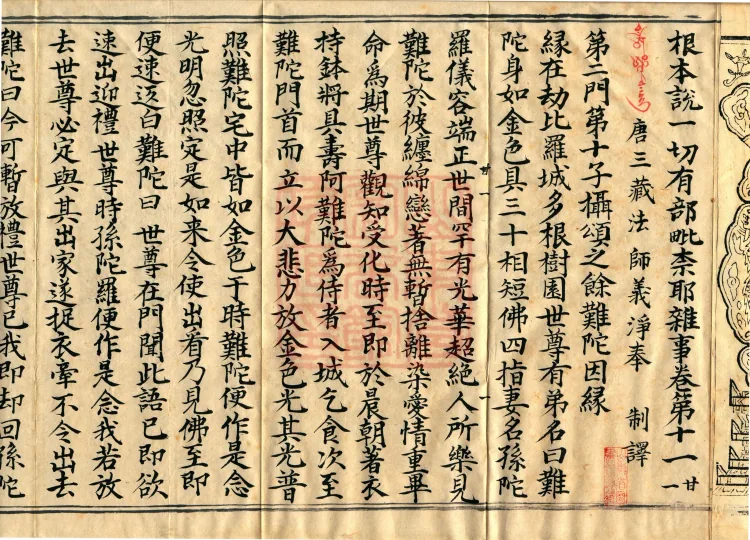 根本說一切有部毗柰耶雜事卷第十一 甘一
唐三藏法師義淨奉 制譯
第二門第十子攝頌之餘難陀因緣
緣在劫比羅城多根樹園世尊有弟名曰難
陀身如金色具三十相短佛四指妻名孫陀
羅儀容端正世間罕有光華超絕人所樂見
難陀於彼纏綿戀著無暫捨離染愛情重畢
命為期世尊觀知受化時至即於晨朝著衣
持鉢將具壽阿難陀為侍者入城乞食次至
難陀門首而立以大悲力放金色光其光普
照難陀宅中皆如金色于時難陀便作是念
光明忽照定是如来令使出看乃見佛至即
便速返白難陀曰世尊在門聞此語已即欲
速出迎禮世尊時孫陀羅便作是念我若放
去世尊必定與其出家遂捉衣牽不令出去
難陀曰今可暫放禮世尊已我即却回孫陀
甘一